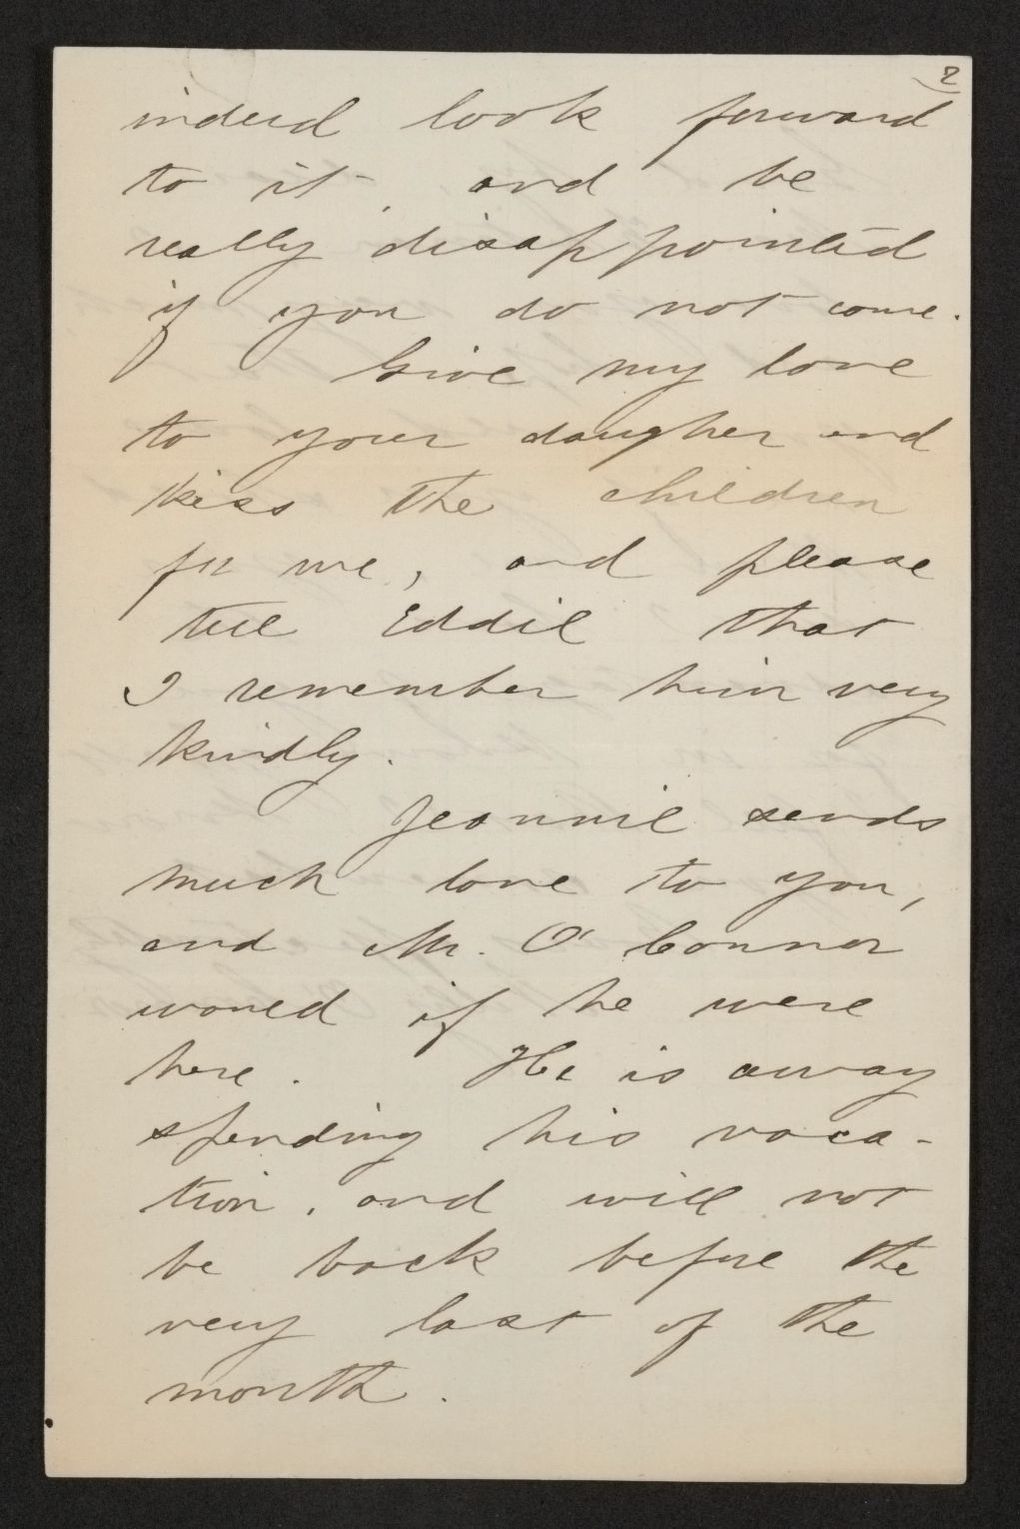 2
indeed look forward
to it, and be
really disappointed
if you do not come.
Give my love
to your daugher and
kiss the children
for me, and please
tell Eddie that
I remember him very
kindly.
Jeannie sends
much love to you,
and Mr. O'Connor
would if he were
here. He is away
spending his vaca-
tion, and will not
be back before the
very last of the
month.